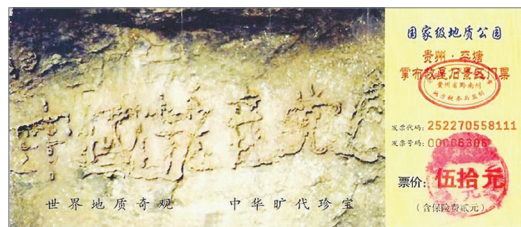 中國共産党
世界地质奇观 中华旷代珍宝
国家级地质公园
贵州·平塘
掌布藏字石景区门票
贵州省黔南州
发票代码: 252270558111
发票号码: 00006306
票价: 伍拾元
(含保险费贰元)